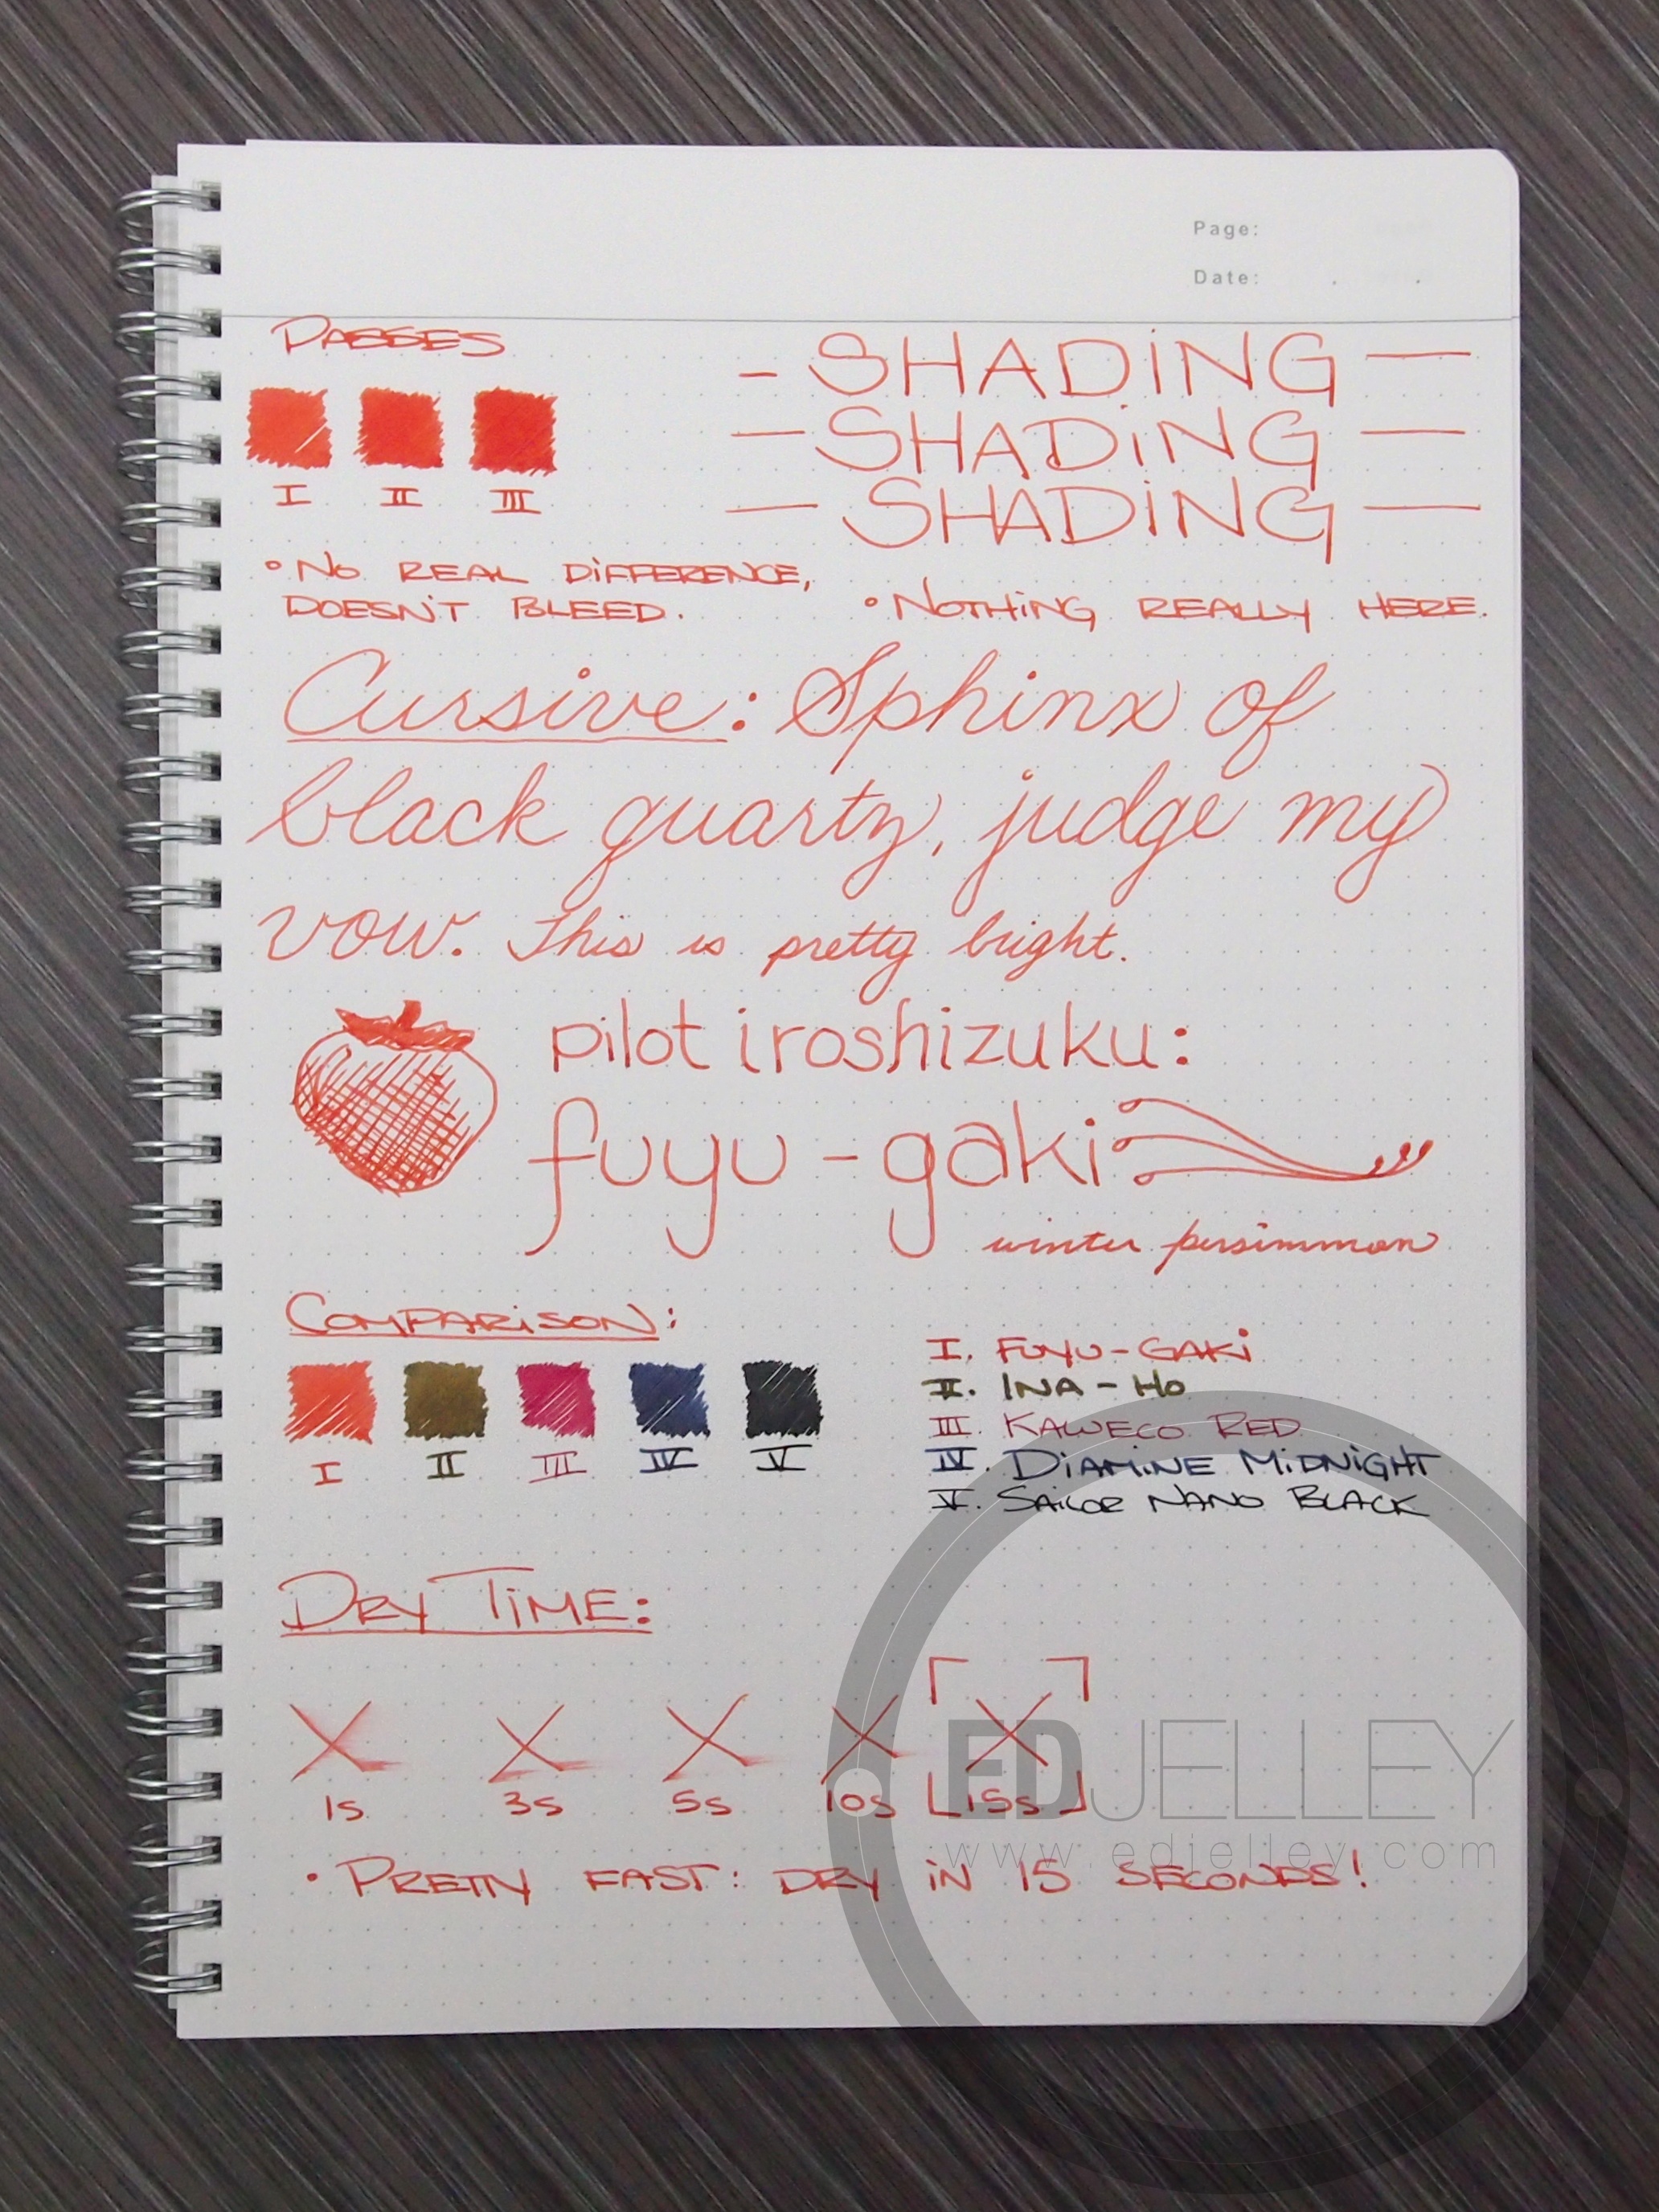 Page:
Date: . .
PASSES
- SHADING -
- SHADING -
- SHADING -
I II III
• NO REAL DIFFERENCE,
DOESN'T BLEED.
• NOTHING REALLY HERE.
Cursive: Sphinx of
black quartz, judge my
vow. This is pretty bright.
pilot iroshizuku:
fuyu-gaki
winter persimmon
COMPARISON:
I II III IV V
I. FUYU-GAKI
II. INA-HO
III. KAWECO RED
IV. DIAMINE MIDNIGHT
V. SAILOR NANO BLACK
DRY TIME:
1s 3s 5s 10s 15s
EDJELLEY
www.edjelley.com
• PRETTY FAST: DRY IN 15 SECONDS!